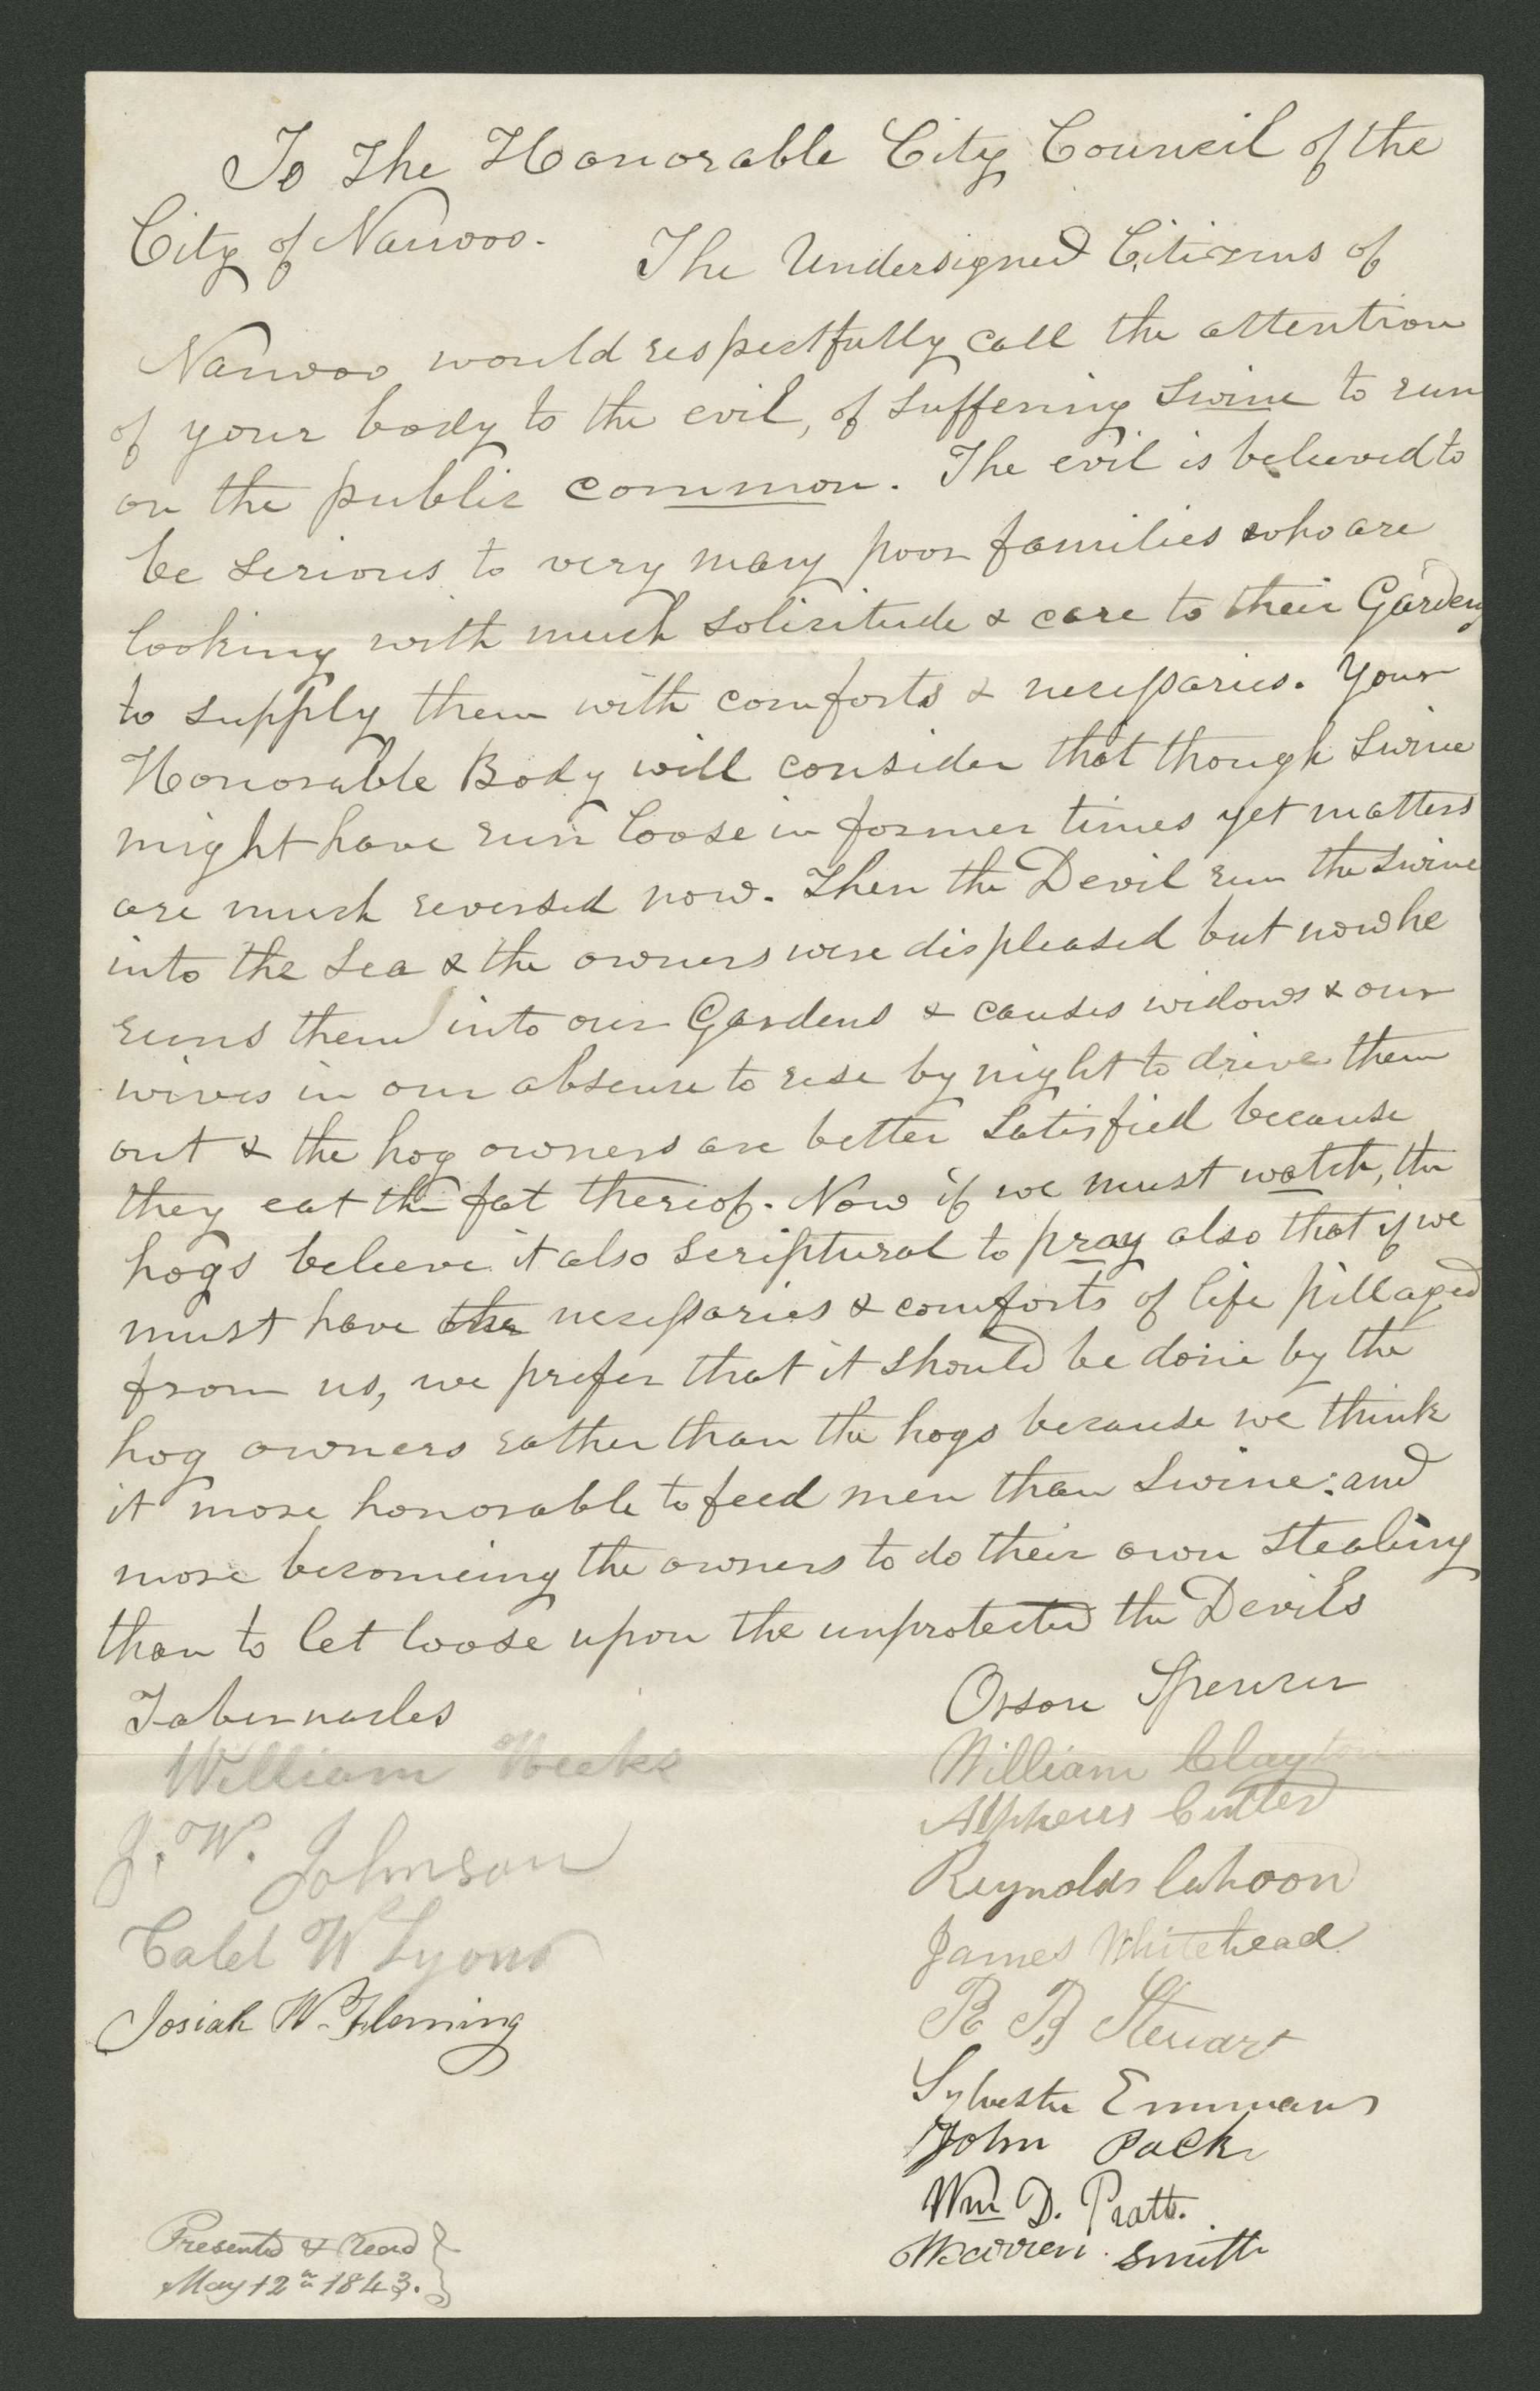 To The Honorable City Council of the
City of Nauvoo.
The Undersigned Citizens of
Nauvoo would respectfully call the attention
of your body to the evil, of suffering swine to run
on the public common. The evil is believed to
be serious to very many poor families who are
looking with much solicitude & care to their Gardens
to supply them with comforts & necessaries. Your
Honorable Body will consider that though swine
might have run loose in former times yet matters
are much reversed now. Then the Devil run the swine
into the Sea & the owners were displeased but now he
runs them into our Gardens & causes widows & our
wives in our absence to rise by night to drive them
out & the hog owners are better satisfied because
they eat the fat thereof. Now if we must watch, the
hogs believe it also scriptural to pray also that if we
must have the necessaries & comforts of life pillaged
from us, we prefer that it should be done by the
hog owners rather than the hogs because we think
it more honorable to feed men than swine: and
more becomeing the owners to do their own stealing
than to let loose upon the unprotected the Devils
Tabernacles
Orson Spencer
William Weeks
William Clayton
Alpheus Cutler
J. W. Johnson
Reynolds Cahoon
Caleb W Lyons
James Whitehead
Josiah W. Fleming
R B Steuart
Sylvester Emmons
John Pack
Wm D. Pratt.
Warren Smith
Presented & Read
May 12th 1843.